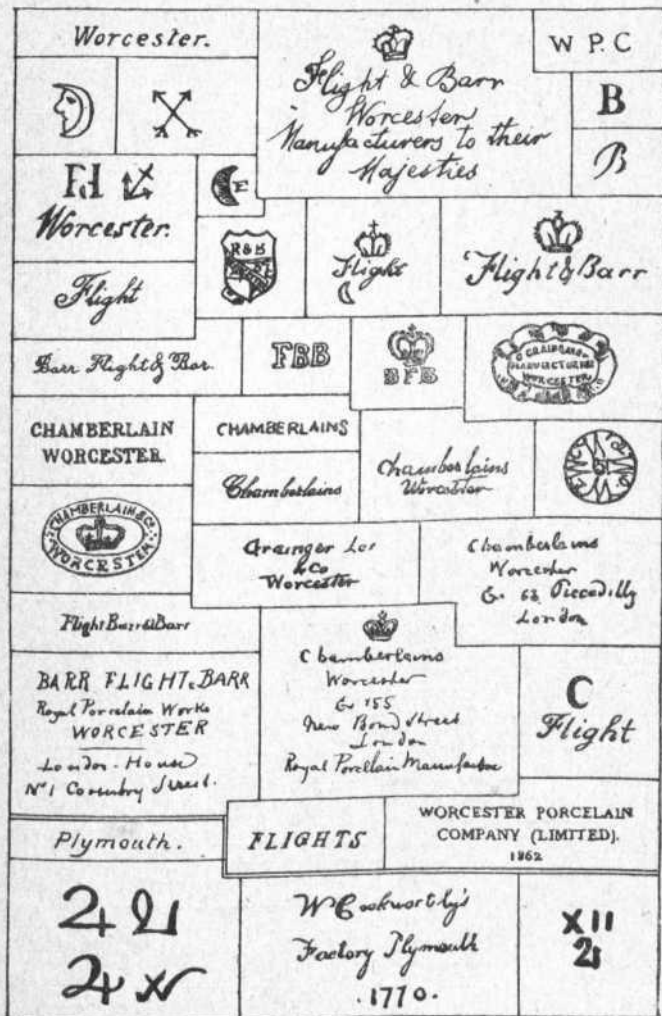 Worcester.
Flight & Barr
Worcester
Manufacturers to their
Majesties
W P.C
B
B
E
Worcester.
R & B
Flight
Flight & Barr
Flight
Barr Flight & Bar.
FBB
BFB
WORCESTER
CHAMBERLAIN
WORCESTER.
CHAMBERLAINS
Chamberlains
Chamberlains
Worcester
CHAMBERLAIN & Co
WORCESTER
Grainger
& Co
Worcester
Chamberlains
Worcester
& 63 Piccadilly
London
Flight Barr & Barr
BARR FLIGHT & BARR
Royal Porcelain Works
WORCESTER
London-House
No 1 Coventry Street.
Chamberlains
Worcester
& 155
New Bond Street
London
Royal Porcelain Manufactor
C
Flight
FLIGHTS
WORCESTER PORCELAIN
COMPANY (LIMITED).
1862
Plymouth.
W Cookworthy's
Factory Plymouth
.1770.
XII